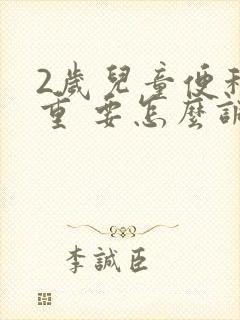 2歲兒童便
重要怎麼調
李誠臣